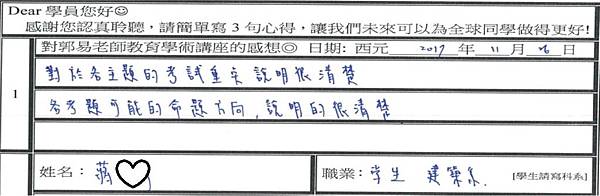 Dear 學員您好☺
感謝您認真聆聽，請簡單寫 3 句心得，讓我們未來可以為全球同學做得更好!
對郭易老師教育學術講座的感想◎ 日期: 西元 2017 年 11 月 日
1
對於各主題的考試重點說明很清楚
各考題可能的命題方向，說明的很清楚
姓名： 蔣
職業： 學生 建築系 [學生請寫科系]